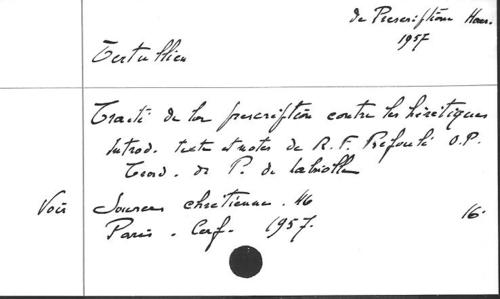 de Prescriptione Haer.
1957
Tertullien
Traité de la prescription contre les hérétiques
Introd. texte et notes de R. F. Refoulé O.P.
Trad. de P. de Labriolle
Voir Sources chrétiennes. 46 16.
Paris. Cerf. 1957.